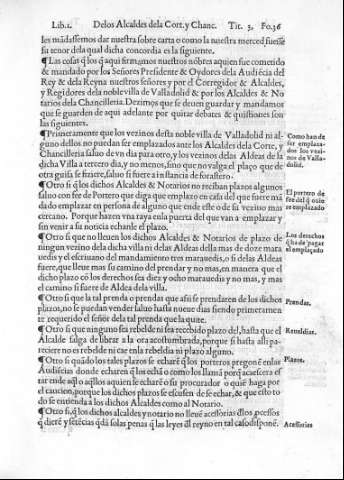 Lib.1. Delos Alcaldes dela Cort, y Chanc. Tit. 3. Fo.36
les mãdassemos dar nuestra sobre carta o como la nuestra merced fuesse
su tenor dela qual dicha concordia es la siguiente.
¶Las cosas q̃ los q̃ aqui firmamos nuestros nõbres aquien fue cometido
& mandado por los Señores Presidente & Oydores dela Audiẽcia del
Rey & dela Reyna nuestros señores y por el Corregidor & Alcaldes,
y Regidores dela noble villa de Valladolid & por los Alcaldes & No
tarios dela Chancilleria. Dezimos que se deuen guardar y mandamos
que se guarden de aqui adelante por quitar debates & quistiones son
las siguientes.
¶Primeramente que los vezinos desta noble villa de Valladolid ni al-
guno dellos no puedan ser emplazados ante los Alcaldes dela Corte, y
Chancilleria saluo de vn dia para otro, y los vezinos delas Aldeas de la
dicha Villa a tercero dia, y no menos, sino que no valga el plaço que de
otra guisa se fiziere, saluo si fuere a instancia de forastero.
Como han de
ser emplaza-
dos los vezi-
nos de Valla-
dolid.
¶Otro si q̃ los dichos Alcaldes & Notarios no reciban plazos algunos
saluo con fee de Portero que diga que emplazo en casa del que fuere mã
dado emplazar en persona de alguno que ende este o de su vezino mas
cercano. Porque hazen vna raya enla puerta del que van a emplazar y
sin venir a su noticia echanle el plazo.
El portero de
fee del q̃ assi
es emplazado
¶Otro si que no lleuen los dichos Alcaldes & Notarios de plazo de
ningun vezino dela dicha villa ni delas Aldeas della mas de doze mara
uedis y el escriuano del mandamiento tres marauedis, o si delas Aldeas
fuere, que lleue mas su camino del prendar y no mas, en manera que el
dicho plazo cõ los derechos sea diez y ocho marauedis y no mas, y mas
el camino si fuere de Aldea dela villa.
Los derechos
q̃ ha de pagar
el emplaçado
¶Otro si que la tal prenda o prendas que assi se prendaren de los dichos
plazos, no se puedan vender saluo hasta nueue dias siendo primeramen
te requerido el señor dela tal prenda que la quite.
Prendas.
¶Otro si que ninguno sea rebelde ni sea recebido plazo del, hasta que el
Alcalde salga de librar a la ora acostumbrada, porque si hasta alli pa-
reciere no es rebelde ni cae enla rebeldia ni plazo alguno.
Rebeldias.
¶Otro si q̃ quãdo los tales plazos se echarẽ q̃ los porteros pregonẽ enlas
Audiẽcias donde echaren q̃ los echã o como los llamã porq̃ acaescera es
tar ende aq̃l o aq̃llos aquien le echarẽ o su procurador o quiẽ haga por
el caucion, porque los dichos plazos se escusen de se echar, & que esto to
do se entienda a los dichos Alcaldes como al Notario.
Plazos.
¶Otro si, q̃ los dichos alcaldes y notario no lleuẽ acessorias
Acessorias